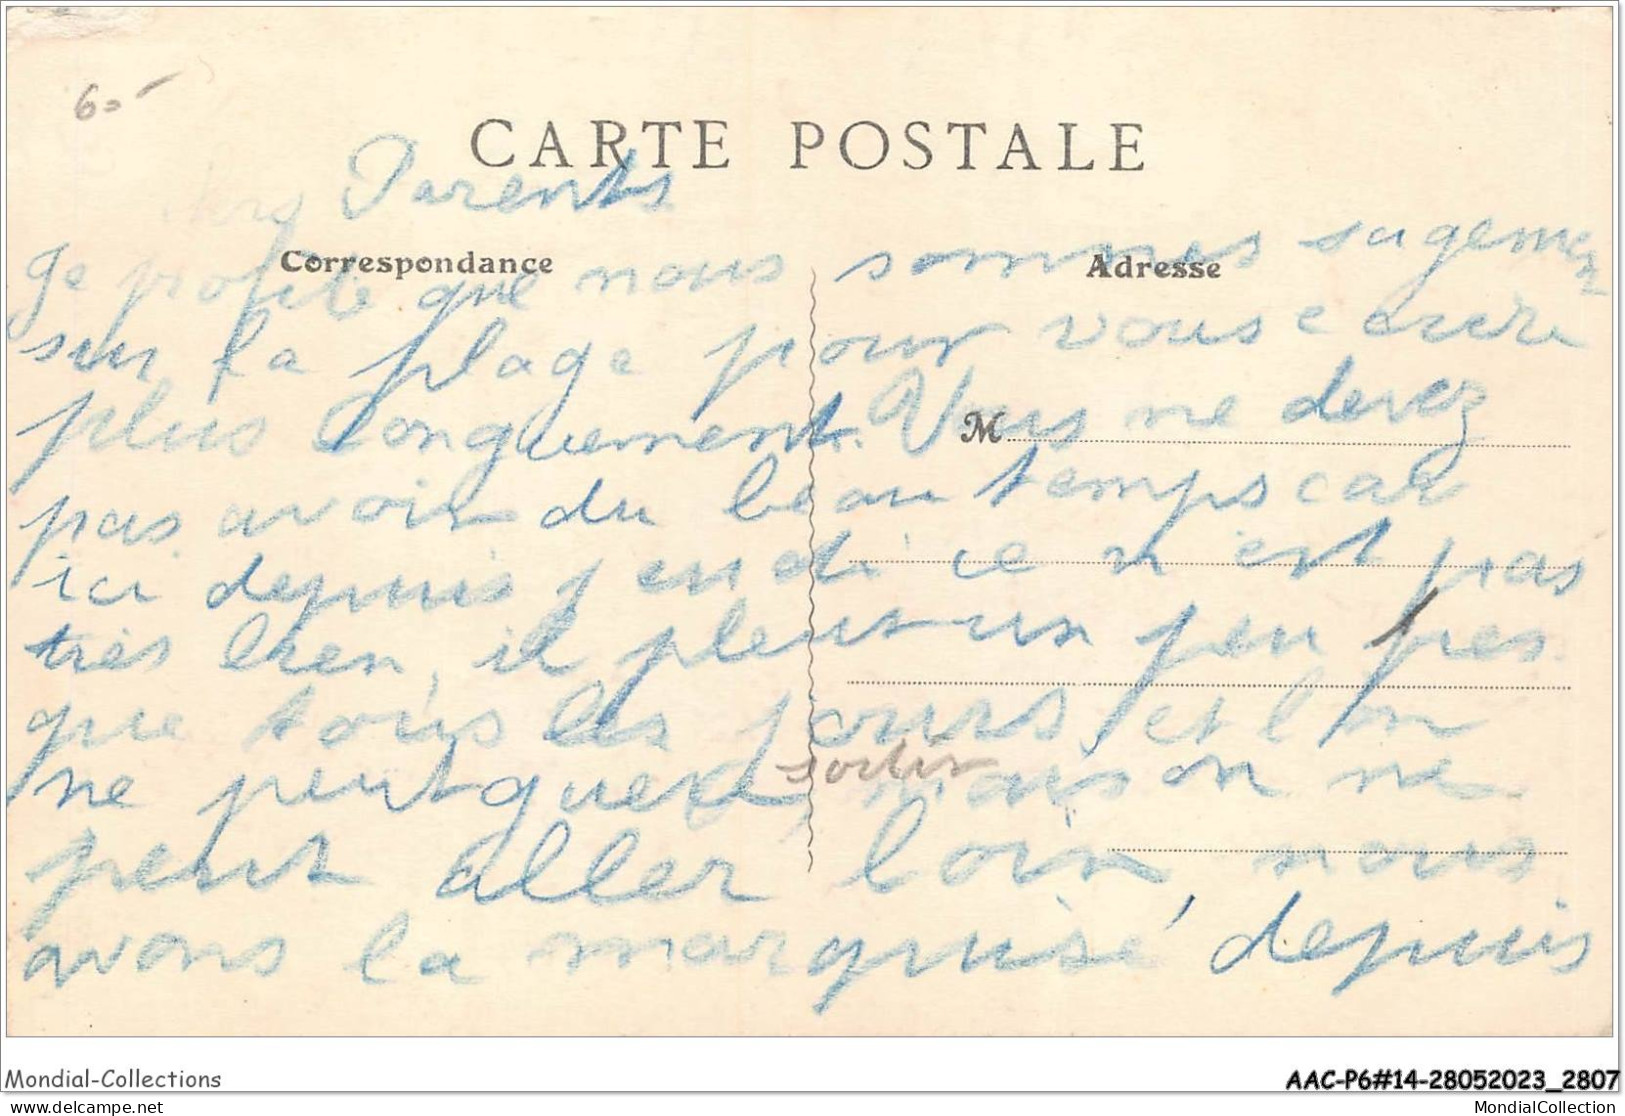 60-
CARTE POSTALE
Chers Parents
Correspondance
Adresse
Je profite que nous sommes sagement
sur la plage pour vous ecrire
plus longuement. Vous ne devez
M
pas avoir du beau temps car
ici depuis jeudi ce n'est pas
très bien, il pleut un peu pres
que tous les jours, et l'on
ne peut guere sortir, mais on ne
peut aller loin, nous
avons la marquise, depuis
Mondial-Collections
AAC-P6#14-28052023_2807
www.delcampe.net
MondialCollection